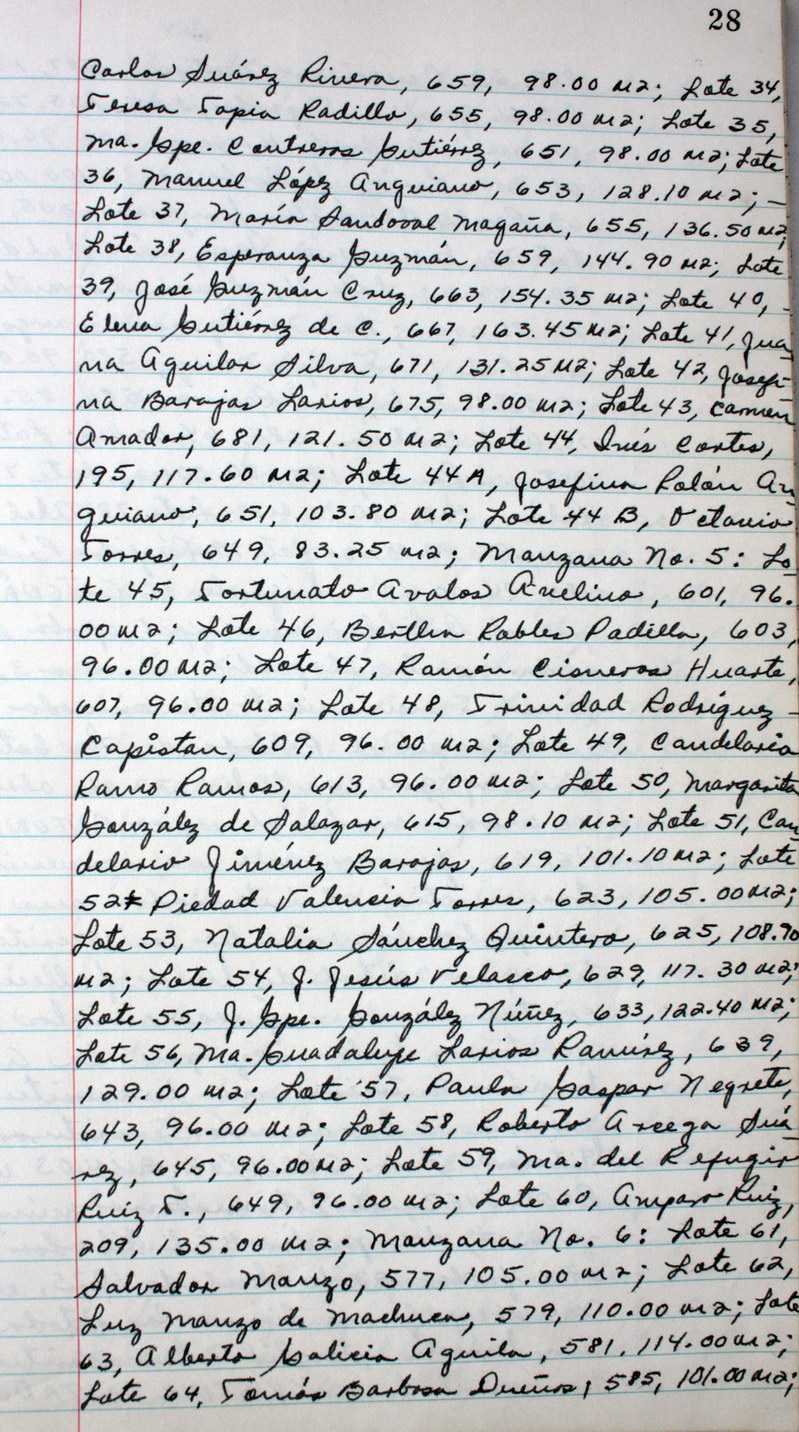 28
Carlos Suárez Rivera, 659, 98.00 m2; Lote 34,
Teresa Tapia Radillo, 655, 98.00 m2; Lote 35,
Ma. Gpe. Contreras Gutiérrez, 651, 98.00 m2; Lote
36, Manuel López Anguiano, 653, 128.10 m2; -
Lote 37, María Sandoval Magaña, 655, 136.50 m2;
Lote 38, Esperanza Guzmán, 659, 144.90 m2; Lote
39, José Guzmán Cruz, 663, 154.35 m2; Lote 40, -
Elena Gutiérrez de C., 667, 163.45 m2; Lote 41, Jua
na Aguilar Silva, 671, 131.25 m2; Lote 42, Josefi-
na Barajas Larios, 675, 98.00 m2; Lote 43, Carmen
Amador, 681, 121.50 m2; Lote 44, Inés Cortes,
195, 117.60 m2; Lote 44 A, Josefina Rolón An
guiano, 651, 103.80 m2; Lote 44 B, Octavio
Torres, 649, 83.25 m2; Manzana No. 5: Lo
te 45, Fortunato Avalos Avelino, 601, 96.
00 m2; Lote 46, Bertha Robles Padilla, 603,
96.00 m2; Lote 47, Ramón Cisneros Huarte,
607, 96.00 m2; Lote 48, Trinidad Rodríguez -
Capistan, 609, 96.00 m2; Lote 49, Candelaria
Ramo Ramos, 613, 96.00 m2; Lote 50, Margarita
González de Salazar, 615, 98.10 m2; Lote 51, Can
delario Jiménez Barajas, 619, 101.10 m2; Lote
52* Piedad Valencia Torres, 623, 105.00 m2;
Lote 53, Natalia Sánchez Quintero, 625, 108.90
m2; Lote 54, J. Jesús Velasco, 629, 117.30 m2;
Lote 55, J. Gpe. González Núñez, 633, 122.40 m2;
Lote 56, Ma. Guadalupe Larios Ramírez, 639,
129.00 m2; Lote 57, Paula Gaspar Negrete,
643, 96.00 m2; Lote 58, Roberto Arcega Suá
rez, 645, 96.00 m2; Lote 59, Ma. del Refugio
Ruiz T., 649, 96.00 m2; Lote 60, Amparo Ruiz,
209, 135.00 m2; Manzana No. 6: Lote 61,
Salvador Manzo, 577, 105.00 m2; Lote 62,
Luz Manzo de Machuca, 579, 110.00 m2; Lote
63, Alberto Galicia Aguila, 581, 114.00 m2;
Lote 64, Tomás Barbosa Dueños, 585, 101.00 m2;